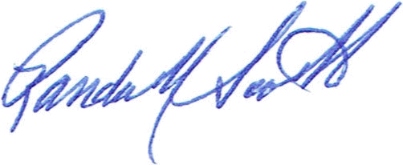 Randall Scott